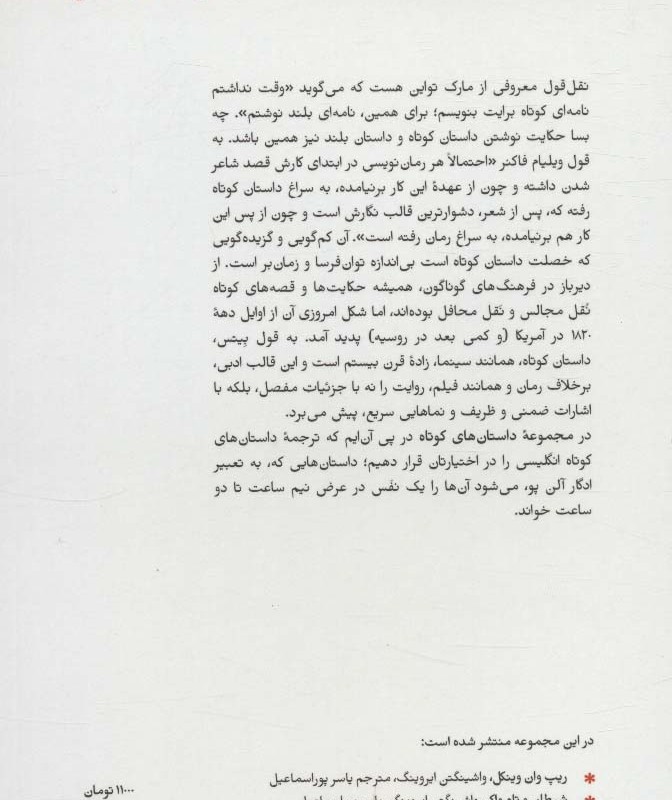 نقل‌قول معروفی از مارک تواین هست که می‌گوید «وقت نداشتم
نامه‌ای کوتاه برایت بنویسم؛ برای همین، نامه‌ای بلند نوشتم». چه
بسا حکایت نوشتن داستان کوتاه و داستان بلند نیز همین باشد. به
قول ویلیام فاکنر «احتمالاً هر رمان‌نویسی در ابتدای کارش قصد شاعر
شدن داشته و چون از عهدهٔ این کار برنیامده، به سراغ داستان کوتاه
رفته که، پس از شعر، دشوارترین قالب نگارش است و چون از پس این
کار هم برنیامده، به سراغ رمان رفته است». آن کم‌گویی و گزیده‌گویی
که خصلت داستان کوتاه است بی‌اندازه توان‌فرسا و زمان‌بر است. از
دیرباز در فرهنگ‌های گوناگون، همیشه حکایت‌ها و قصه‌های کوتاه
نُقل مجالس و نَقل محافل بوده‌اند، اما شکل امروزی آن از اوایل دههٔ
۱۸۲۰ در آمریکا (و کمی بعد در روسیه) پدید آمد. به قول بِیتس،
داستان کوتاه، همانند سینما، زادهٔ قرن بیستم است و این قالب ادبی،
برخلاف رمان و همانند فیلم، روایت را نه با جزئیات مفصل، بلکه با
اشارات ضمنی و ظریف و نماهایی سریع، پیش می‌برد.
در مجموعهٔ داستان‌های کوتاه در پی آن‌ایم که ترجمهٔ داستان‌های
کوتاه انگلیسی را در اختیارتان قرار دهیم؛ داستان‌هایی که، به تعبیر
ادگار آلن پو، می‌شود آن‌ها را یک نفَس در عرض نیم ساعت تا دو
ساعت خواند.
در این مجموعه منتشر شده است:
* ریپ وان وینکل، واشینگتن ایروینگ، مترجم یاسر پوراسماعیل
۱۱۰۰۰ تومان